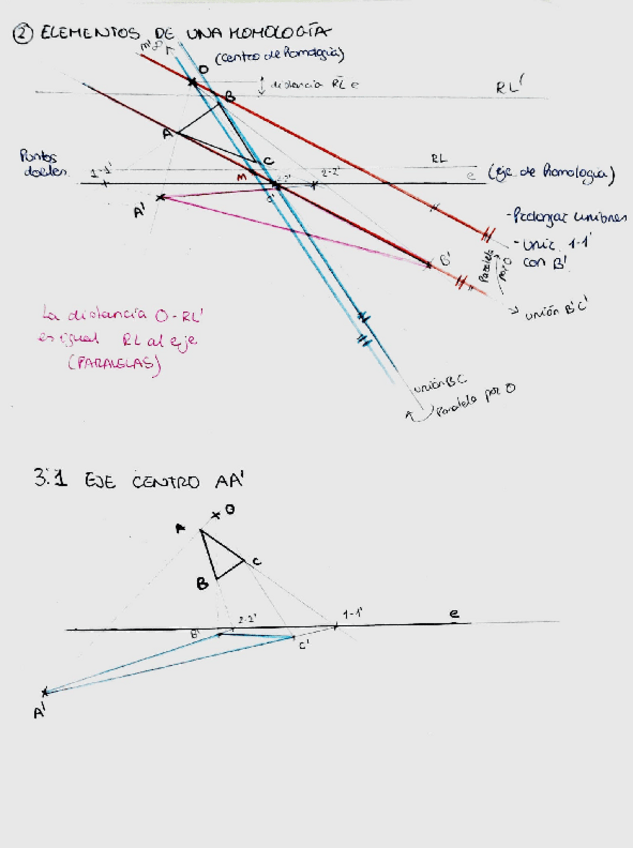 ② ELEMENTOS DE UNA HOMOLOGÍA
(Centro de Homología)
O
distancia RL e
RL'
B
A
C
Puntos dobles
1-1'
M
2-2'
RL
e (eje de Homología)
A'
C'
B'
-Prolongar uniones
-Unir 1-1' con B'
Paralela por O
unión B'C'
La distancia O-RL'
es igual RL al eje
(PARALELAS)
unión BC
Paralela por O
3.1 EJE CENTRO AA'
O
A
C
B
2-2'
1-1'
e
B'
C'
A'